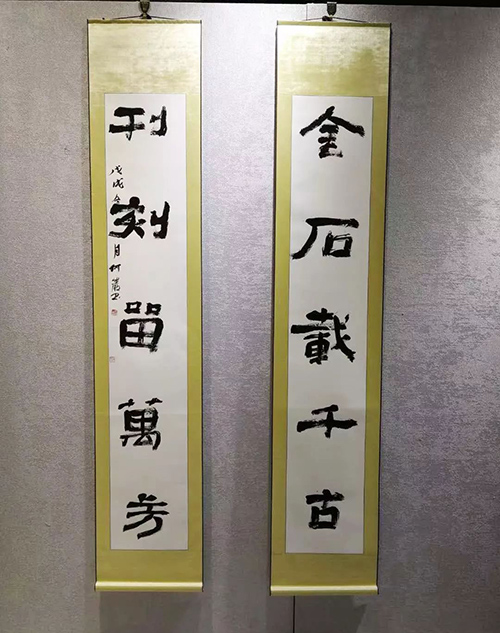 金石載千古
刊刻留萬芳
戊戌冬月